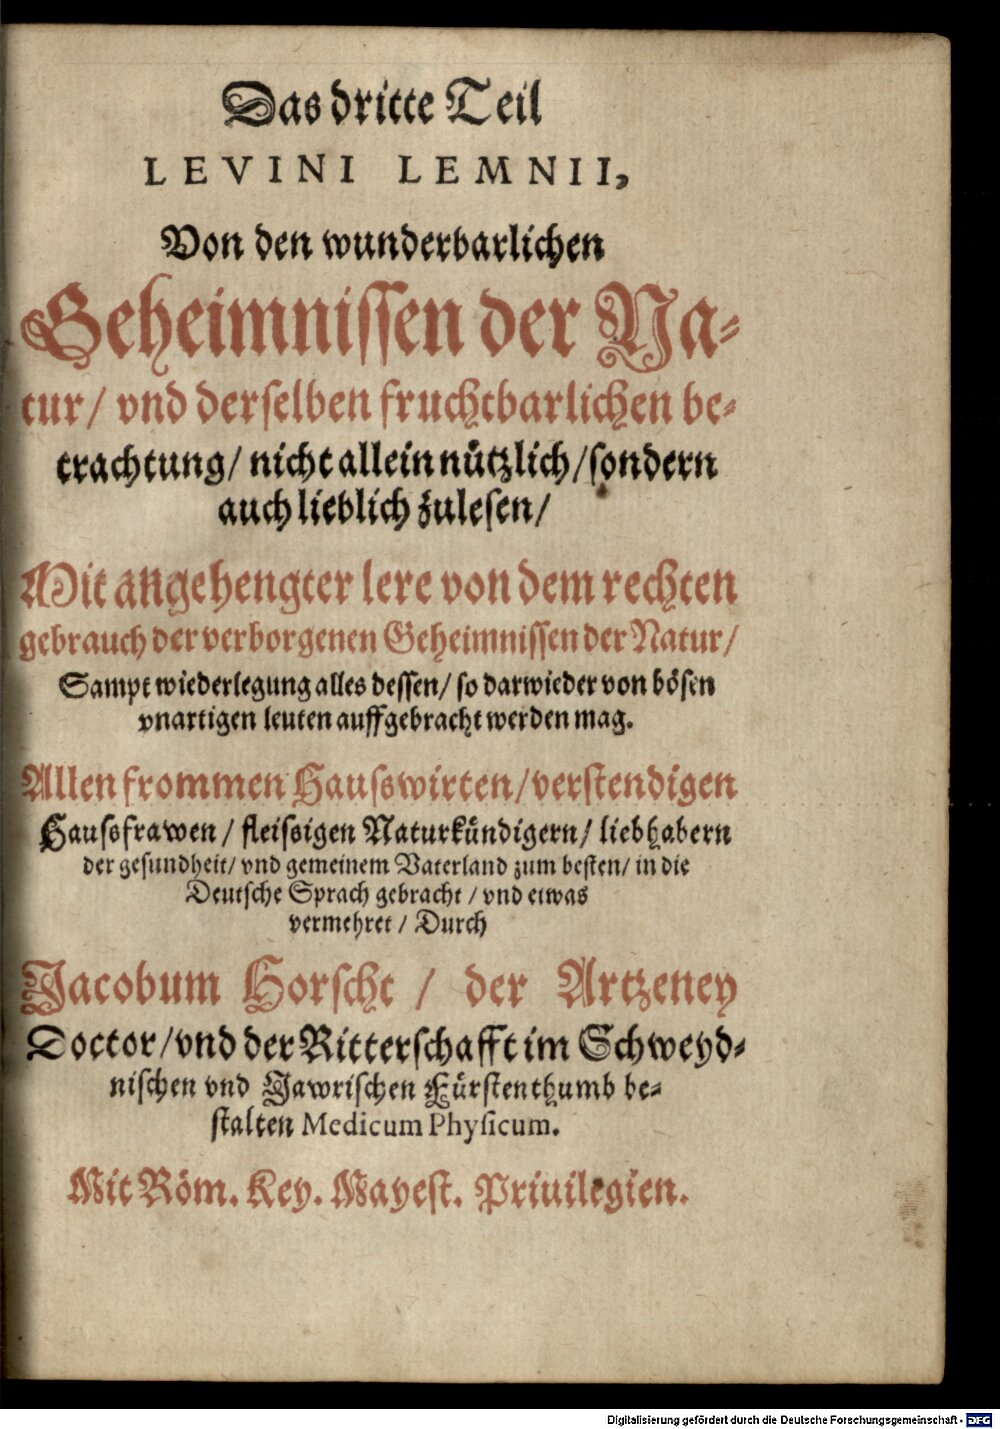 Das dritte Teil
LEVINI LEMNII,
Von den wunderbarlichen
Geheimnissen der Na-
tur/ vnd derselben fruchtbarlichen be-
trachtung/ nicht allein nützlich/ sondern
auch lieblich zulesen/
Mit angehengter lere von dem rechten
gebrauch der verborgenen Geheimnissen der Natur/
Sampt wiederlegung alles dessen/ so darwieder von bösen
vnartigen leuten auffgebracht werden mag.
Allen frommen Hausswirten/ verstendigen
Haussfrawen/ fleissigen Naturkündigern/ liebhabern
der gesundheit/ vnd gemeinem Vaterland zum besten/ in die
Deutsche Sprach gebracht/ vnd etwas
vermehret/ Durch
Jacobum Horscht/ der Artzeney
Doctor/ vnd der Ritterschafft im Schweyd-
nischen vnd Jawrischen Fürstenthumb be-
stalten Medicum Physicum.
Mit Röm. Key. Mayest. Priuilegien.
Digitalisierung gefördert durch die Deutsche Forschungsgemeinschaft - DFG